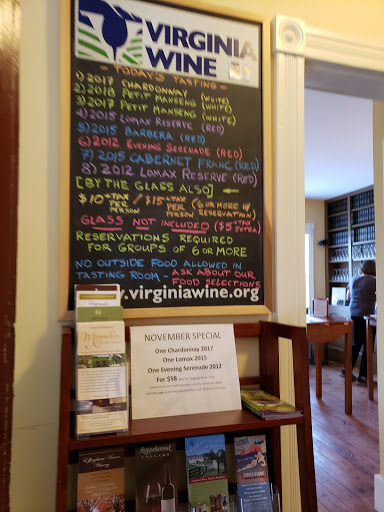 VIRGINIA
WINE
- TODAY'S TASTING -
1) 2017 CHARDONNAY
2) 2018 PETIT MANSENG (WHITE)
3) 2017 PETIT MANSENG (WHITE)
4) 2015 LOMAX RESERVE (RED)
5) 2015 BARBERA (RED)
6) 2012 EVENING SERENADE (RED)
7) 2015 CABERNET FRANC (RED)
8) 2012 LOMAX RESERVE (RED)
[BY THE GLASS ALSO]
$10 + TAX PER PERSON / $15 + TAX PER PERSON (6 OR MORE W/ RESERVATION)
GLASS NOT INCLUDED ($5 + TAX EXTRA)
RESERVATIONS REQUIRED
FOR GROUPS OF 6 OR MORE
NO OUTSIDE FOOD ALLOWED IN
TASTING ROOM - ASK ABOUT OUR
FOOD SELECTIONS
.virginiawine.org
NOVEMBER SPECIAL
One Chardonnay 2017
One Lomax 2015
One Evening Serenade 2012
For $58
Magnolia
Rappahannock
CELLARS